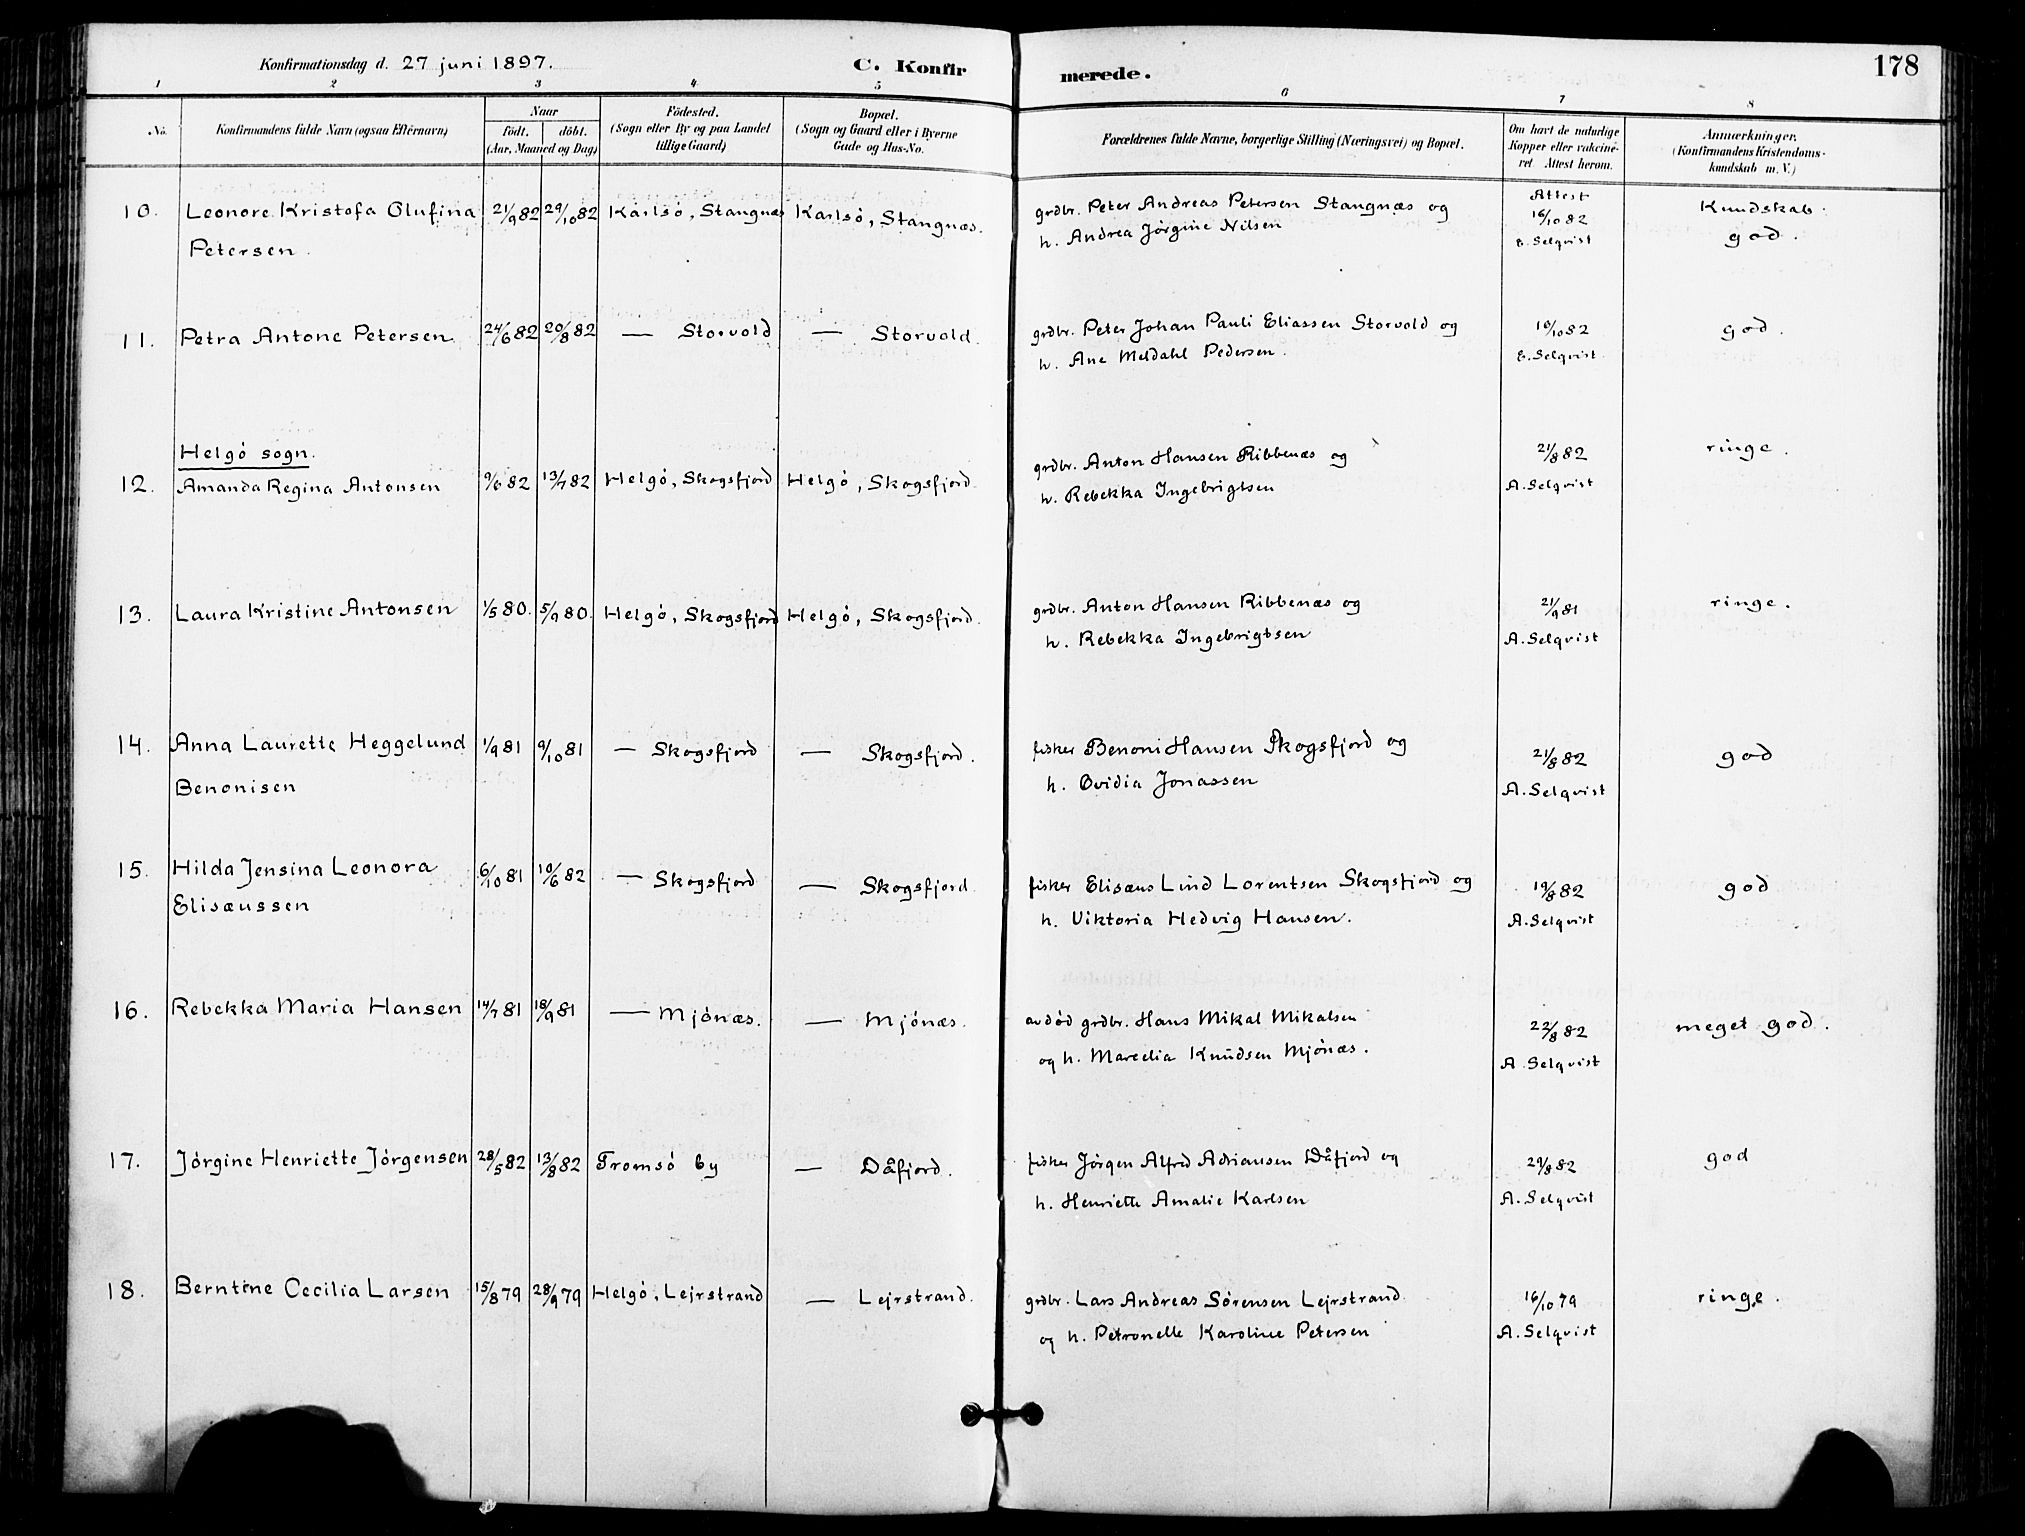 Konfirmationsdag d. 27 juni 1897. C. Konfirmerede. 178
1 2 3 4 5 6 7 8
No. Konfirmandens fulde Navn (ogsaa Efternavn)
Naar
födt. döbt.
(Aar, Maaned og Dag)
Födested.
(Sogn eller By og paa Landet
tillige Gaard)
Bopæl.
(Sogn og Gaard eller i Byerne
Gade og Hus-No.
Forældrenes fulde Navne, borgerlige Stilling (Næringsvei) og Bopæl.
Om havt de naturlige
Kopper eller vakcine-
ret. Attest herom.
Anmærkninger.
(Konfirmandens Kristendoms-
kundskab m. V.)
10. Leonore Kristofa Olufina 21/9 82 29/10 82 Karlsö, Stangnæs Karlsö, Stangnæs. grdbr. Peter Andreas Petersen Stangnæs og Attest 16/10 82 Kundskab
Petersen. h. Andrea Jörgine Nilsen E. Selqvist god.
11. Petra Antone Petersen 24/6 82 20/8 82 — Storvold — Storvold. grdbr. Peter Johan Pauli Eliassen Storvold og 16/10 82 god.
h. Ane Meldahl Pedersen. E. Selqvist.
Helgö sogn.
12. Amanda Regina Antonsen 9/6 82 13/7 82 Helgö, Skogsfjord Helgö, Skogsfjord. grdbr. Anton Hansen Ribbenæs og 21/8 82 ringe.
h. Rebekka Ingebrigtsen A. Selqvist
13. Laura Kristine Antonsen 1/5 80. 5/9 80. Helgö, Skogsfjord Helgö, Skogsfjord. grdbr. Anton Hansen Ribbenæs og 21/9 81 ringe.
h. Rebekka Ingebrigtsen A. Selqvist
14. Anna Laurette Heggelund 1/9 81 9/10 81 — Skogsfjord — Skogsfjord. fisker Benoni Hansen Skogsfjord og 21/8 82 god
Benonisen h. Ovidia Jonassen A. Selqvist
15. Hilda Jensina Leonora 6/10 81 10/6 82 — Skogsfjord — Skogsfjord. fisker Elisæus Lind Lorentsen Skogsfjord og 19/8 82 god
Elisæussen h. Viktoria Hedvig Hansen. A. Selqvist
16. Rebekka Maria Hansen 14/7 81 18/9 81 — Mjönæs. — Mjönæs. avdöd grdbr. Hans Mikal Mikalsen 22/8 82 meget god.
og h. Marcelia Knudsen Mjönæs. A. Selqvist
17. Jörgine Henriette Jörgensen 28/5 82 13/8 82 Tromsö by — Dåfjord. fisker Jörgen Alfred Adriansen Dåfjord og 29/8 82 god
h. Henriette Amalie Karlsen A. Selqvist
18. Berntine Cecilia Larsen 15/8 79 28/9 79 Helgö, Lejrstrand — Lejrstrand. grdbr. Lars Andreas Sörensen Lejrstrand 16/10 79 ringe.
og h. Petronelle Karoline Petersen A. Selqvist